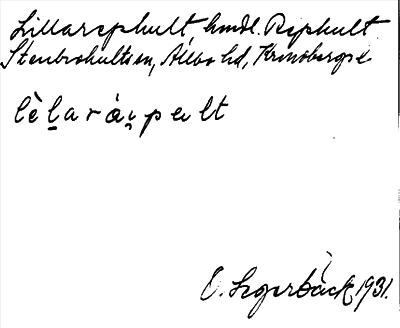 Lillarephult, hmdl. Rephult
Stenbrohults sn, Allbo hd, Kronobergs l
lèḻarày̱pault
O. Segerbäck 1931.